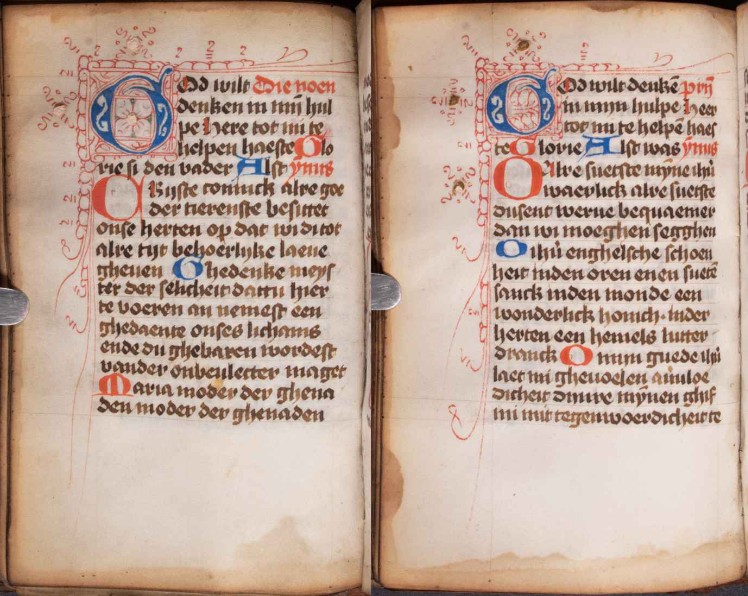 God wilt Die noen
denken in mijn hul
pe Here tot mi te
helpen haeste Glo
rie si den vader Alst ymnis
Criste coninck alre goe
der tierenste besitter
onse herten op dat wi di tot
alre tijt behoerlijke laeue
gheuen Ghedenke meys
ter der selicheit dattu hier
te voeren an nemest een
ghedaente onses lichams
ende du ghebaren wordest
vander onbeulecter maget
Maria moder der ghena
den moder der ghenaden
God wilt denkē prij
in mijn hulpe Heer
tot mi te helpē haes
te Glorie Alst was ymis
O Alre suetste mijne ihū
waerlick alre suetste
dusent werue bequaemer
dan wi moeghen segghen
O ihū enghelsche schoen
heit inden oren enen suetē
sanck inden monde een
wonderlick honich inder
herten een hemels lutter
dranck O mijn guede ihū
laet mi gheuoelen
dicheit dinre mynen ghif
mi mit tegenwoerdicheit te